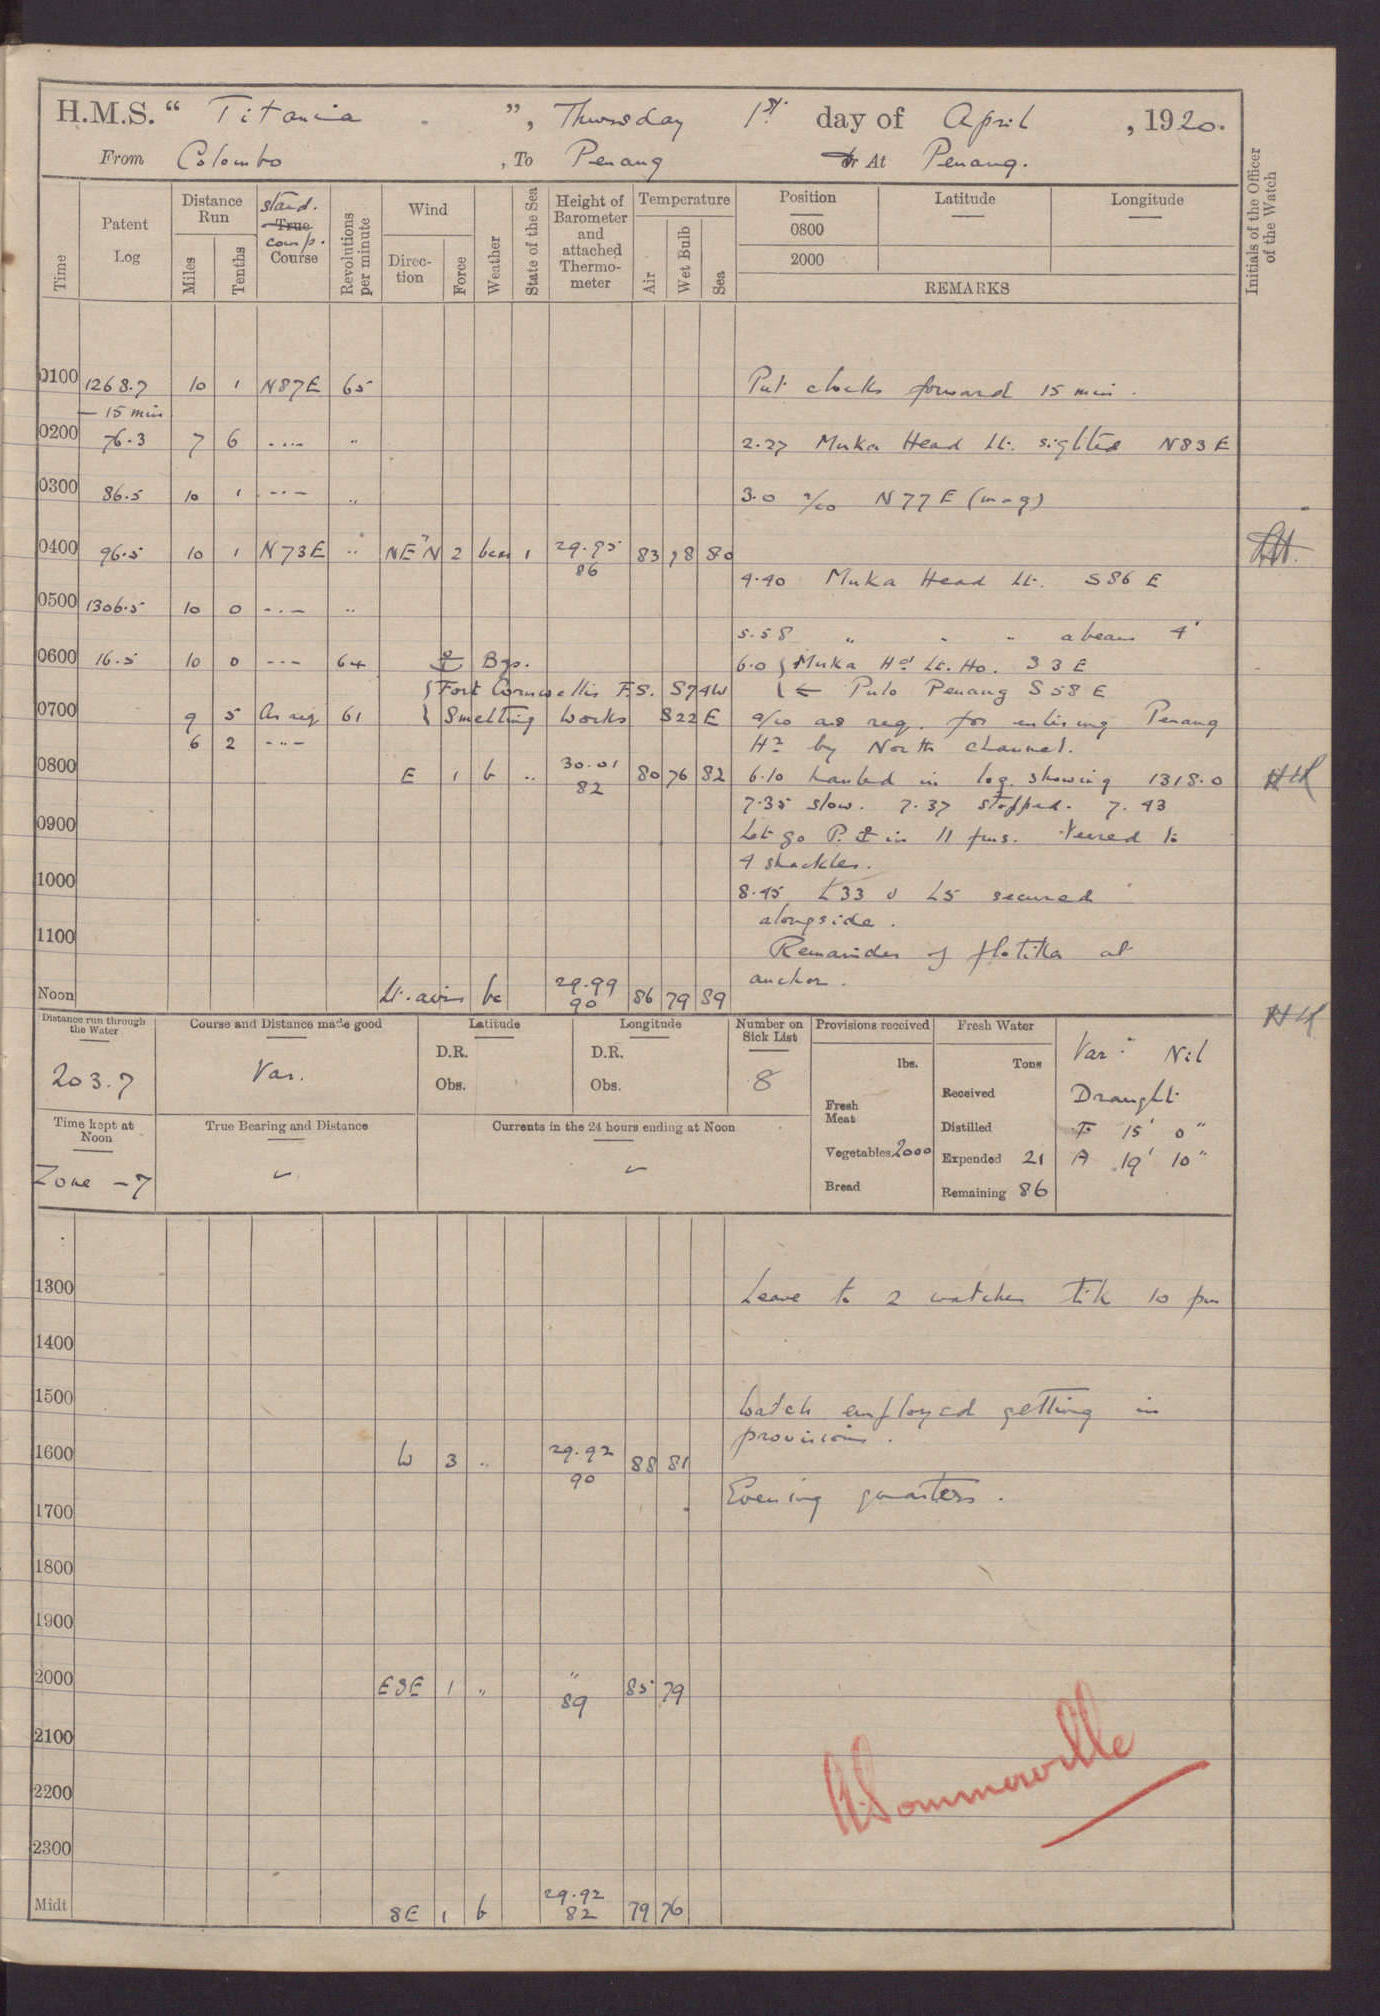 H.M.S. “ Titania ”, Thursday 1st day of April , 1920.
From Colombo , To Penang or At Penang.
Time
Patent Log
Distance Run
Miles
Tenths
stand. True comp. Course
Revolutions per minute
Wind
Direction
Force
Weather
State of the Sea
Height of Barometer and attached Thermometer
Temperature
Air
Wet Bulb
Sea
Position
0800
2000
Latitude
Longitude
REMARKS
Initials of the Officer of the Watch
0100 1268.7 10 1 N87E 65 Put clocks forward 15 min.
— 15 min
0200 76.3 7 6 -..- " 2.27 Muka Head Lt. sighted N83E
0300 86.5 10 1 -..- " 3.0 a/co N77E (mag)
0400 96.5 10 1 N73E " NE"N 2 1 29.95 83 78 80
86
4.40 Muka Head Lt. S86E
0500 1306.5 10 0 -.- "
5.58 " " " abeam 4'
0600 16.5 10 0 --- 64 ⚓ Bgs. 6.0 { Muka Hd Lt. Ho. S3E
{ Fort Cornwallis F.S. S74W { ← Pulo Penang S58E
0700 9 5 As req. 61 { Smelting Works S22E a/co as req. for entering Penang
6 2 -..- Hr by North channel.
0800 E 1 b .. 30.01 80 76 82 6.10 hauled in log. showing 1318.0
82
7.35 slow. 7.37 stopped. 7.43
0900 Let go P. ⚓ in 11 fms. Veered to
4 shackles.
1000 8.45 L33 & L5 secured
alongside.
1100 Remainder of flotilla at
anchor.
Noon Lt. airs bc 29.99 86 79 89
90
HH
Distance run through the Water
203.7
Course and Distance made good
Var.
Latitude
D.R.
Obs.
Longitude
D.R.
Obs.
Number on Sick List
8
Provisions received
lbs.
Fresh Meat
Vegetables 2000
Bread
Fresh Water
Tons
Received
Distilled
Expended 21
Remaining 86
Varn Nil
Draught
F 15' 0"
A 19' 10"
Time kept at Noon
Zone -7
True Bearing and Distance
Currents in the 24 hours ending at Noon
1300 Leave to 2 watches till 10 pm
1400
1500 Watch employed getting in
provisions.
1600 W 3 .. 29.92 88 81
90
Evening quarters.
1700
1800
1900
2000 ESE 1 " " 85 79
89
2100
2200
2300
Midt SE 1 b 29.92 79 76
82
Sommerville